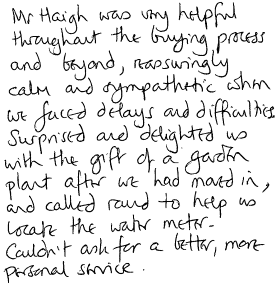 Mr Haigh was very helpful
throughout the buying process
and beyond, reassuringly
calm and sympathetic when
we faced delays and difficulties
Surprised and delighted us
with the gift of a garden
plant after we had moved in,
and called round to help us
locate the water meter.
Couldn't ask for a better, more
personal service.